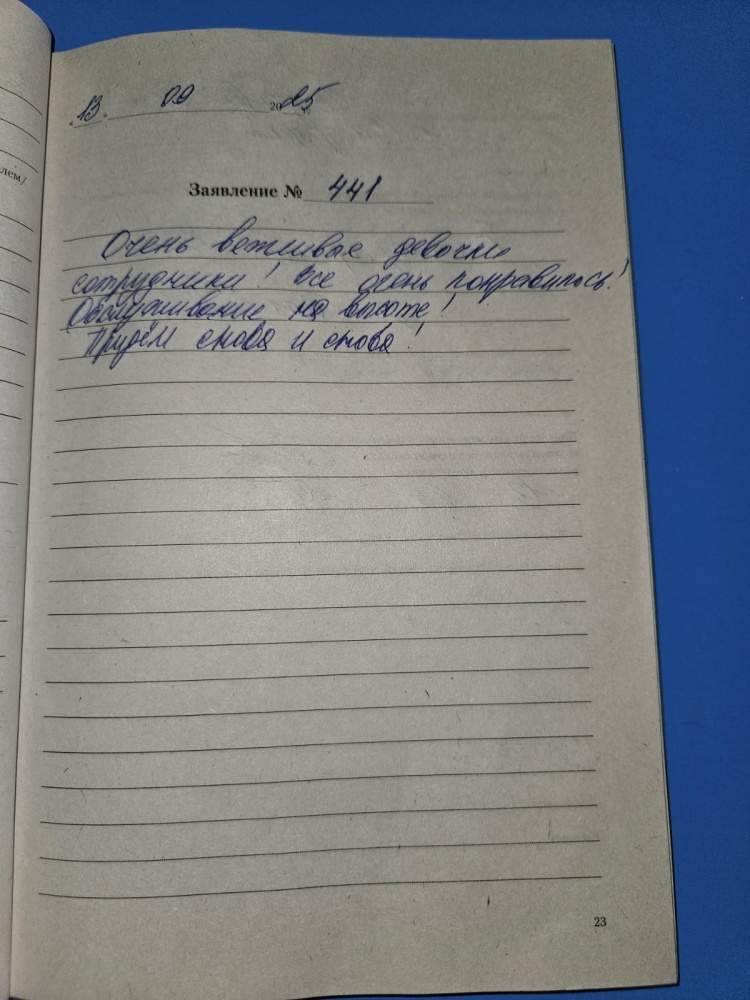 лем/
13. 09 2025
Заявление № 441
Очень вежливые девочки
сотрудники! Все очень понравилось!
Обслуживание на высоте!
Придём снова и снова!
23